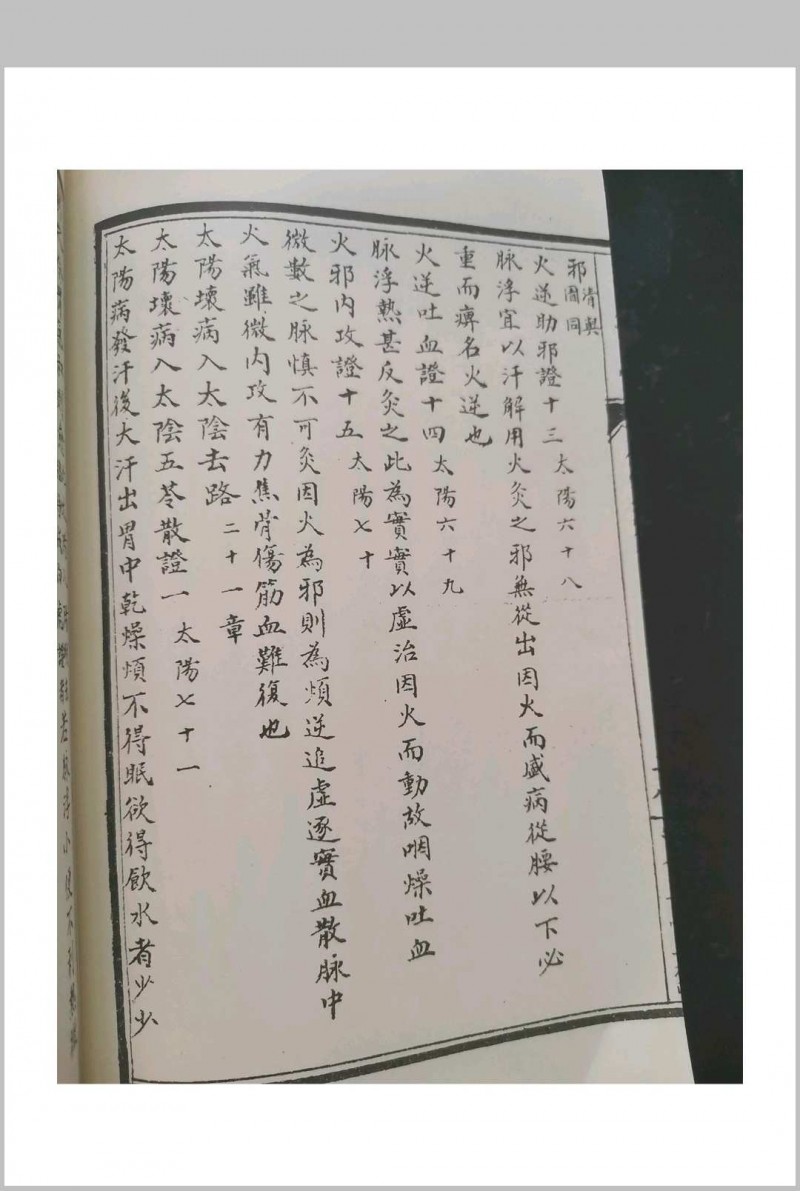 邪
火逆助邪證十三 太陽六十八
脉浮宜以汗解用火灸之邪無從出因火而盛病從腰以下必
重而痺名火逆也
火逆吐血證十四 太陽六十九
脉浮熱甚反灸之此為實實以虛治因火而動故咽燥吐血
火邪内攻證十五 太陽七十
微數之脉慎不可灸因火為邪則為煩逆追虛逐實血散脉中
火氣雖微内攻有力焦骨傷筋血難復也
太陽壞病入太陰去路 二十一章
太陽壞病入太陰五苓散證一 太陽七十一
太陽病發汗後大汗出胃中乾燥煩不得眠欲得飲水者少少